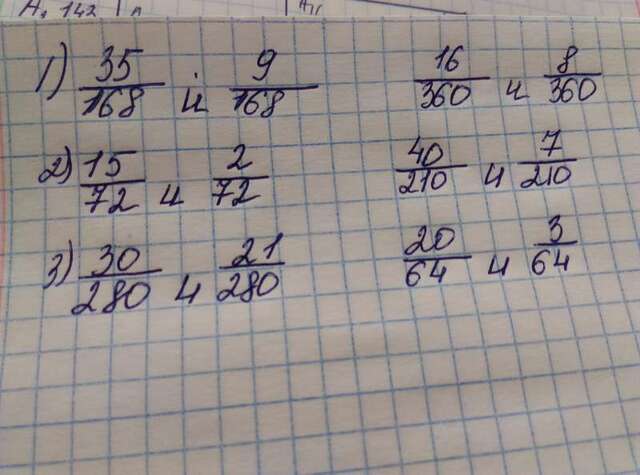 A, 142
1) 35/168 и 9/168 16/360 и 8/360
2) 15/72 и 2/72 40/210 и 7/210
3) 30/280 и 21/280 20/64 и 3/64